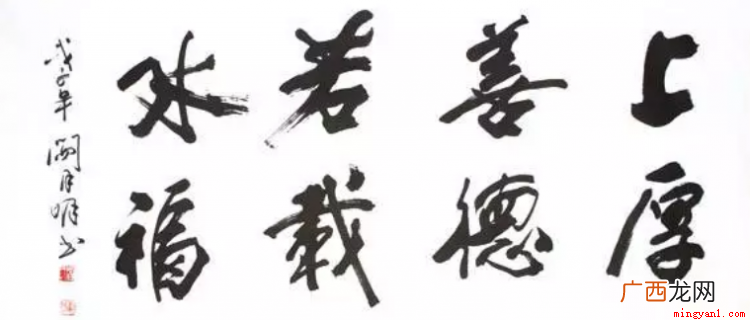 上善若水
厚德載福
戊子年 月明书
广西龙网
mingyan1.com